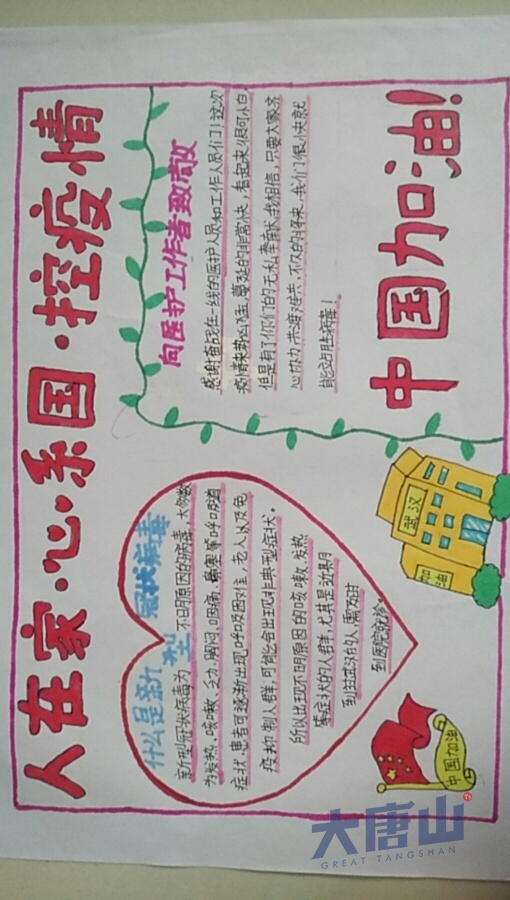 人在家·心系国·控疫情
什么是新型
冠状病毒
新型冠状病毒为不明原因的病毒,大多数
为发热、咳嗽、乏力、胸闷、咽痛、鼻塞等呼吸道
症状,患者可逐渐出现呼吸困难,老人以及免
疫抑制人群,可能会出现非典型症状。
所以出现不明原因的咳嗽、发热
等症状的人群,尤其是近期
到过武汉的人,需及时
到医院就诊。
向医护工作者致敬
感谢奋战在一线的医护人员和工作人员们!这次
疫情来势凶猛,蔓延的非常快,看起来很可怕,
但是有了你们的无私奉献,我相信,只要大家齐
心协力,共渡难关,不久的将来,我们很快就
能战胜病毒!
中国加油!
武汉
加油
中国加油
大唐山
GREAT TANGSHAN